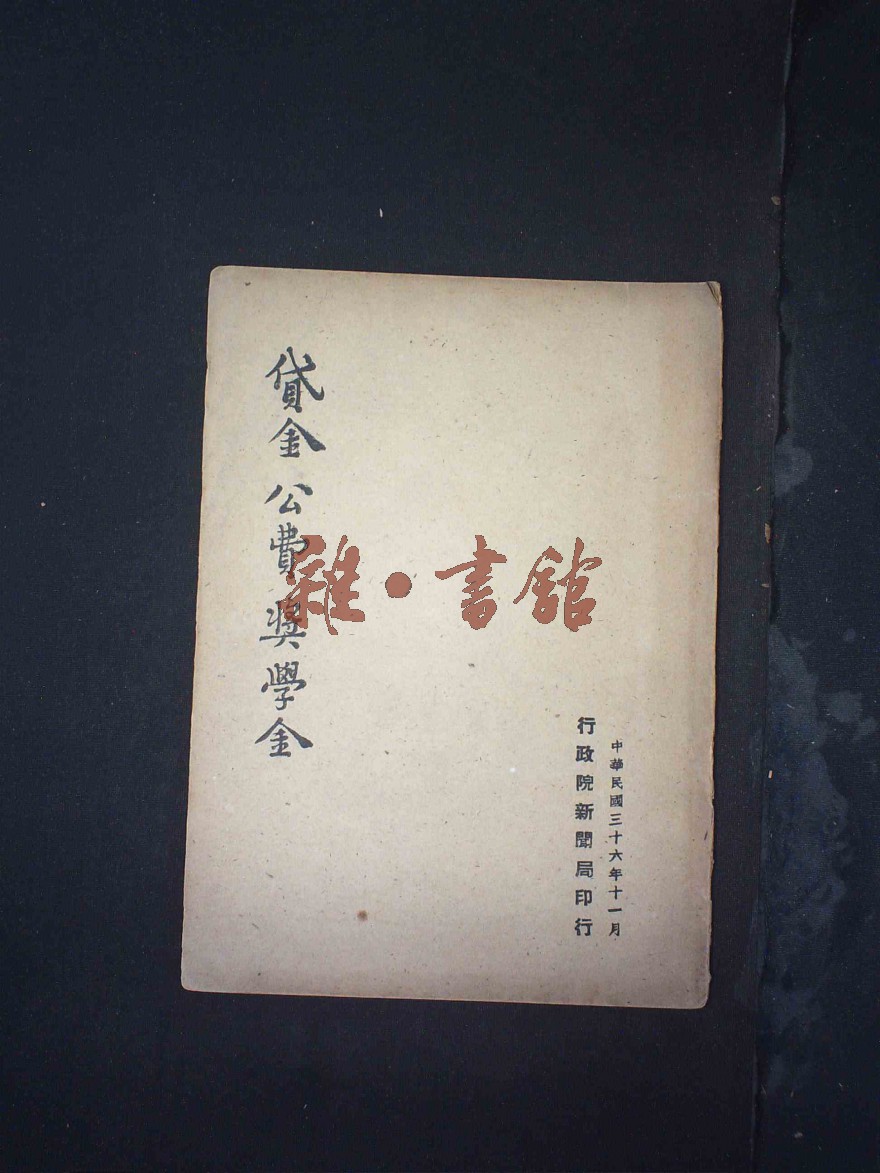 中華民國三十六年十一月
行政院新聞局印行
貸金公費奬學金
雜·書館